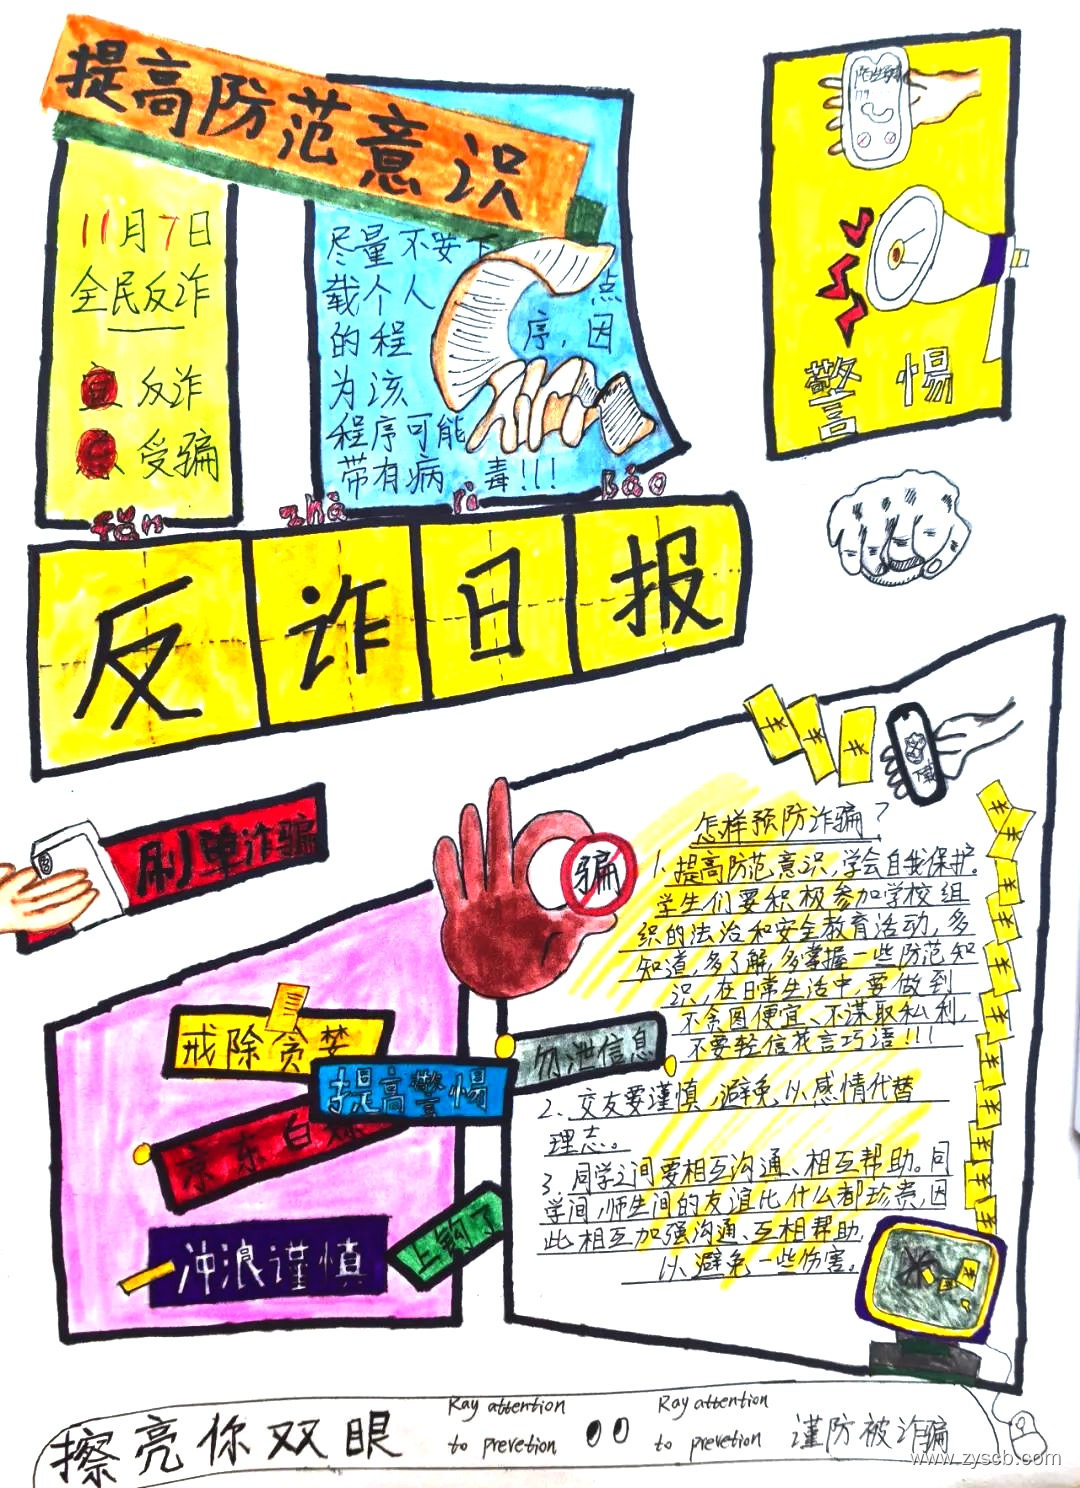 提高防范意识
11月7日
全民反诈
反诈
受骗
尽量不要下
载个人 点
的程 序,因
为该
程序可能
带有病 毒!!!
警惕
fǎn zhà rì bào
反诈日报
刷单诈骗
骗
戒除贪婪
提高警惕
勿泄信息
京东白条
冲浪谨慎
上钩了
下载
怎样预防诈骗?
1、提高防范意识,学会自我保护。
学生们要积极参加学校组
织的法治和安全教育活动,多
知道,多了解,多掌握一些防范知
识,在日常生活中,要做到
不贪图便宜、不谋取私利,
不要轻信花言巧语!!!
2、交友要谨慎,避免以感情代替
理志。
3、同学之间要相互沟通、相互帮助。同
学间,师生间的友谊比什么都珍贵,因
此相互加强沟通、互相帮助,
以避免一些伤害。
擦亮你双眼
Ray attention
to prevetion
Ray attention
to prevetion
谨防被诈骗
www.zyscb.com